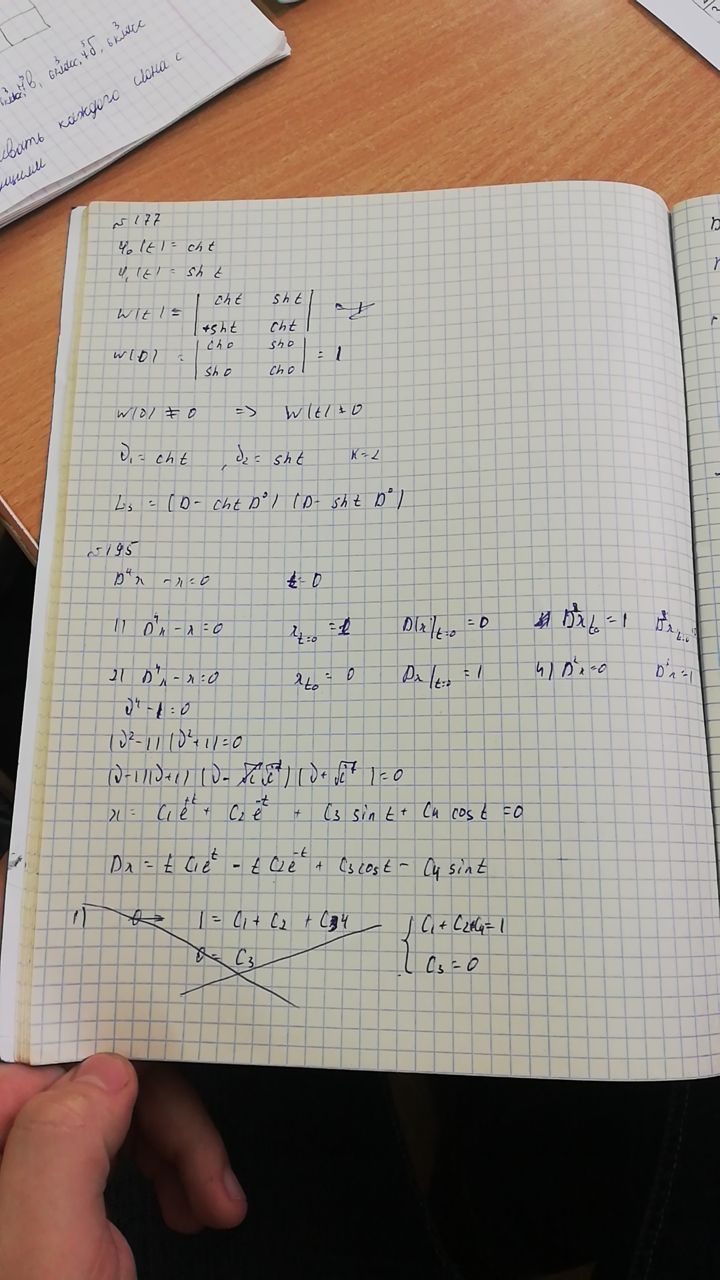 6 класс
ивать каждого слона с
ющими
№177
φ₀(t) = ch t
φ₁(t) = sh t
W(t) = | ch t sh t |
| +sh t ch t |
W(0) = | ch 0 sh 0 | = 1
| sh 0 ch 0 |
W(0) ≠ 0 => W(t) ≠ 0
λ₁ = ch t , λ₂ = sh t K = 2
L₃ = (D - ch t D⁰) (D - sh t D⁰)
№195
D⁴x - x = 0 t = 0
1) D⁴x - x = 0 x_{t=0} = 1 D(x)|_{t=0} = 0 D²x_{t0} = 1
2) D⁴x - x = 0 x_{t0} = 0 Dx|_{t=0} = 1 4) D²x = 0 D²x = 1
λ⁴ - 1 = 0
(λ² - 1) (λ² + 1) = 0
(λ - 1)(λ + 1) (λ - √i²) (λ + √i²) = 0
x = C₁e^{+t} + C₂e^{-t} + C₃ sin t + C₄ cos t = 0
Dx = t C₁e^t - t C₂e^{-t} + C₃ cos t - C₄ sin t
1) 1 = C₁ + C₂ + C4 { C₁ + C₂ + C₄ = 1
0 = C₃ C₃ = 0